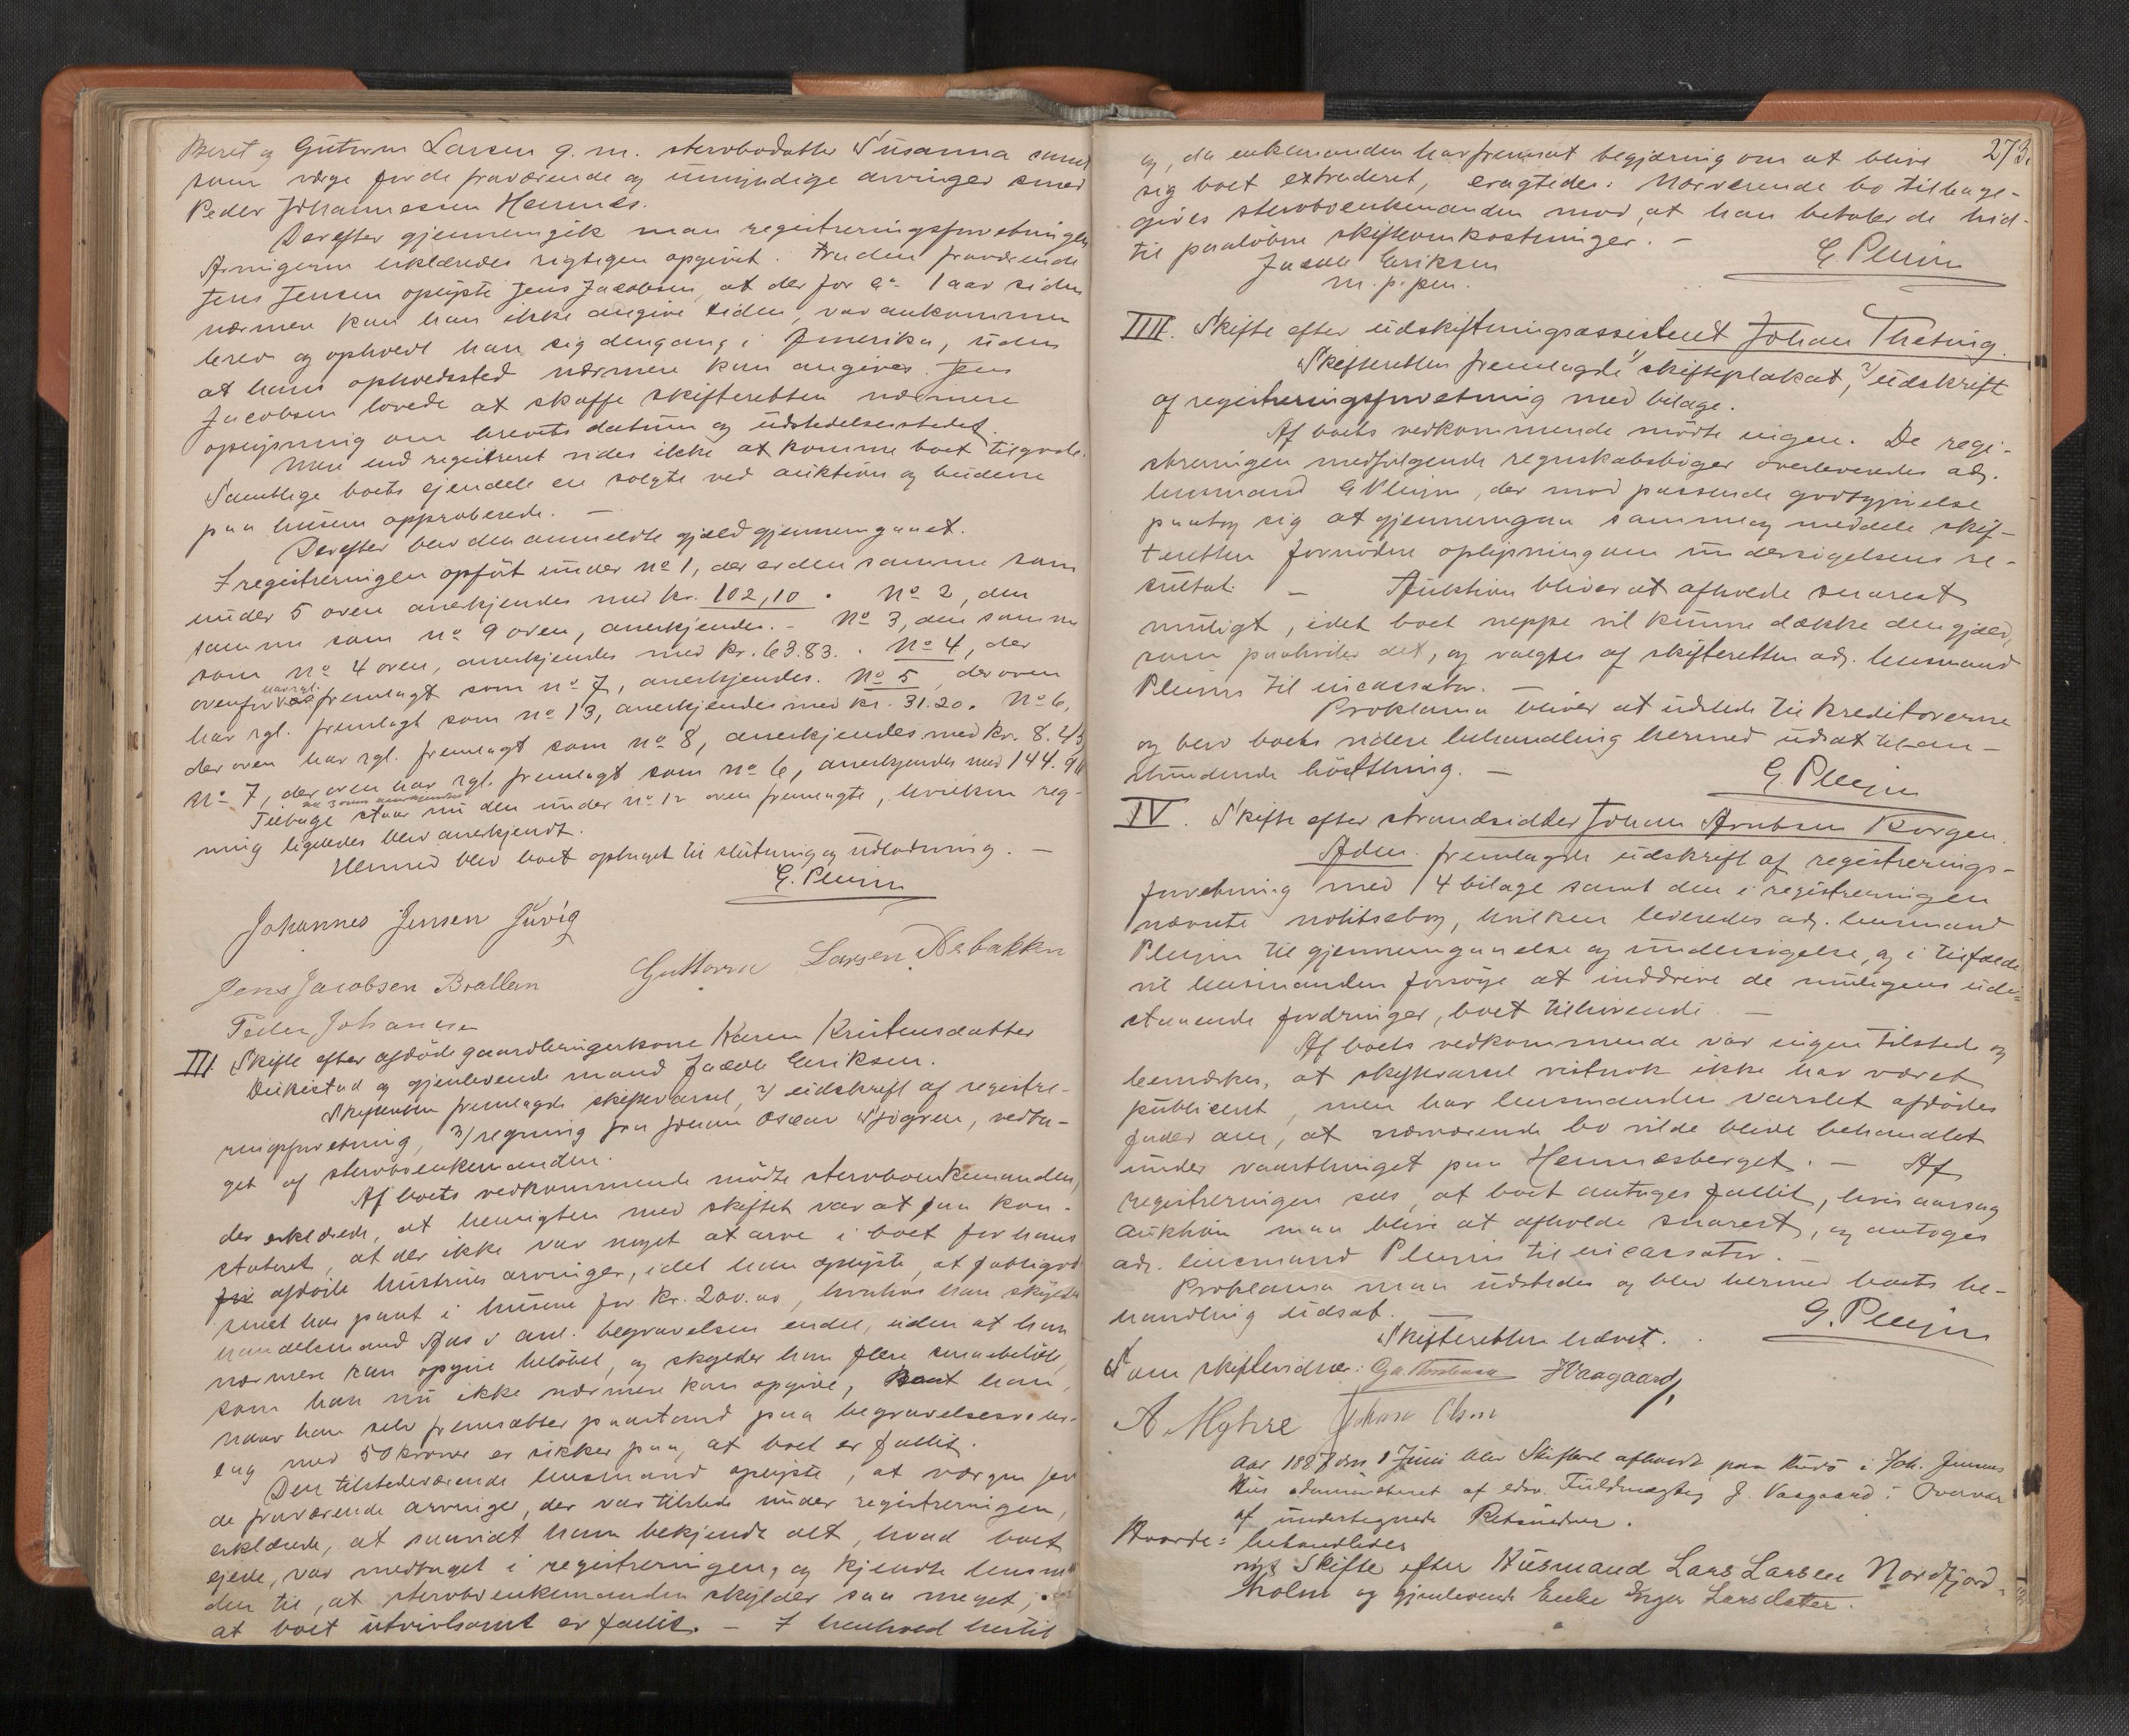 Beret og Gutorm Larsen g. m. sterbodatter Susanna samt
som værge for de fraværende og umyndige arvinger smed
Peder Johannessen Hennes.
Derefter gjennemgik man registreringsforretningen
Arvingerne erklæredes rigtigen opgivet. Om den fraværende
Jens Jensen oplyste Jens Jacobsen, at der for ca 1 aar siden
nærmere kan han ikke angive tiden, var ankommen
brev og opholdt han sig dengang i Amerika, uden
at hans opholdssted nærmere kan angives. Jens
Jacobsen lovede at skaffe skifteretten nærmere
oplysning om brevets datum og udstedelsesstedet.
Mere end registreret vides ikke at komme boet tilgode.
Samtlige boets ejendele er solgte ved auktion og budene
paa husene approberede. —
Derefter blev den anmeldte gjæld gjennemgaaet.
I registreringen opført under No 1, der er den samme som
under 5 oven anerkjendes med kr. 102,10. No 2, den
samme som No 9 oven, anerkjendes. - No 3, den samme
som No 4 oven, anerkjendes med kr. 63.83. . No 4, der
ovenfor har rgl. fremlagt som No 7, anerkjendes. No 5, der oven
har rgl. fremlagt som No 13, anerkjendes med kr. 31.20. No 6,
der oven har rgl. fremlagt som No 8, anerkjendes med kr. 8.45
No 7, der oven har rgl. fremlagt som No 6, anerkjendes med 144.90
Tilbage staar nu den under No 12 oven fremlagte, hvilken reg-
ning ligeledes blev anerkjendt.
Hermed blev boet optaget til slutning og udlodning. —
G. Pleym
Johannes Jensen Juvig
Guttorm Larsen Aabakken
Jens Jacobsen Brallen
Peder Johansen
III. Skifte efter afdøde gaardbrugerkone Karen Kristensdatter
Deikestad og gjenlevende mand Jacob Eriksen.
Skifteretten fremlagde skiftevarsel, 2/ udskrift af registre-
ringsforretning, 3/ regning fra Johan Oscar Sjøgren, vedta-
get af sterboenkemanden.
Af boets vedkommende mødte sterboenkemanden,
der erklærede, at hensigten med skiftet var at faa kon-
stateret, at der ikke var noget at arve i boet for hans
afdøde hustrus arvinger, idet han oplyste, at
har pant i husene for kr. 200.00, hvorhos han skylder
handelsmand Aas i anl. begravelsen endel, uden at han
nærmere kan opgive beløbet, og skylder han flere smaabeløb,
som han nu ikke nærmere kan opgive, samt han,
naar han selv fremsætter paastand paa begravelsesvede-
lag med 50 kroner er sikker paa, at boet er fallit.
Den tilstedeværende lensmand oplyste, at værgen for
de fraværende arvinger, der var tilstede under registreringen,
erklærede, at saavidt ham bekjendt alt, hvad boet
ejede, var medtaget i registreringen, og kjendte lensman
den til, at sterboenkemanden skylder saa meget,
at boet utvivlsomt er fallit. — I henhold hertil
273.
og, da enkemanden har fremsat begjæring om at blive
sig boet extraderet, eragtedes: Nærværende bo tilbage-
gives sterboenkemanden mod, at han betaler de hid-
til paaløbne skifteomkostninger. —
G. Pleym
Jacob Eriksen
m. p. pen.
IIII. Skifte efter udskiftningsassistent Johan Thesing.
Skifteretten fremlagde 1/ skifteplakat, 2/ udskrift
af registreringsforretning med bilage.
Af boets vedkommende mødte ingen. De regi-
streringen medfølgende regnskabsbøger overleveredes adj.
lensmand G Pleym, der mod passende godtgjørelse
paatog sig at gjennemgaa samme og meddele skif-
teretten fornøden oplysning om undersøgelsens re-
sultat. — Auktion bliver at afholde snarest
muligt, idet boet neppe vil kunne dække den gjæld,
som paahviler det, og valgtes af skifteretten adj. lensmand
Pleym til incassator. —
Proklama bliver at udstede til kreditorerne
og blev boets videre behandling hermed udsat til an-
stundende høstthing. —
G. Pleym
IV. Skifte efter strandsidder Johan Arntsen Korgen.
Adm. fremlagde udskrift af registrerings-
forretning med 14 bilage samt den i registreringen
nævnte notitsebog, hvilken leveredes adj. lensmand
Pleym til gjennemgaaelse og undersøgelse, og i tilfælde
vil lensmanden forsøge at inddrive de muligens ude-
staaende fordringer, boet tilhørende. —
Af boets vedkommende var ingen tilstede og
bemærkes, at skiftevarsel vistnok ikke har været
publiceret, men har lensmanden varslet afdødes
fader om, at nærværende bo vilde blive behandlet
under vaarthinget paa Hemnesberget. — Af
registreringen sees, at boet antages fallit, hvis aarsag
auktion maa blive at afholde snarest, og antoges
adj. lensmand Pleym til incassator. —
Proklama maa udstedes og blev hermed boets be-
handling udsat. —
G. Pleym
Skifteretten hævet.
Som skiftevidner: JVaagaard
A Myhre Johan Olsen
Aar 1887 den 1 Juni blev Skifteret afholdt paa i Joh. Jensens
Hus administreret af edsv. Fuldmægtig J. Vaagaard i Overvær
af undertegnede Retsvidner.
Hvorda: behandledes
Skifte efter Husmand Lars Larsen Nordfjord-
holm og gjenlevende Enke Inger Larsdatter.